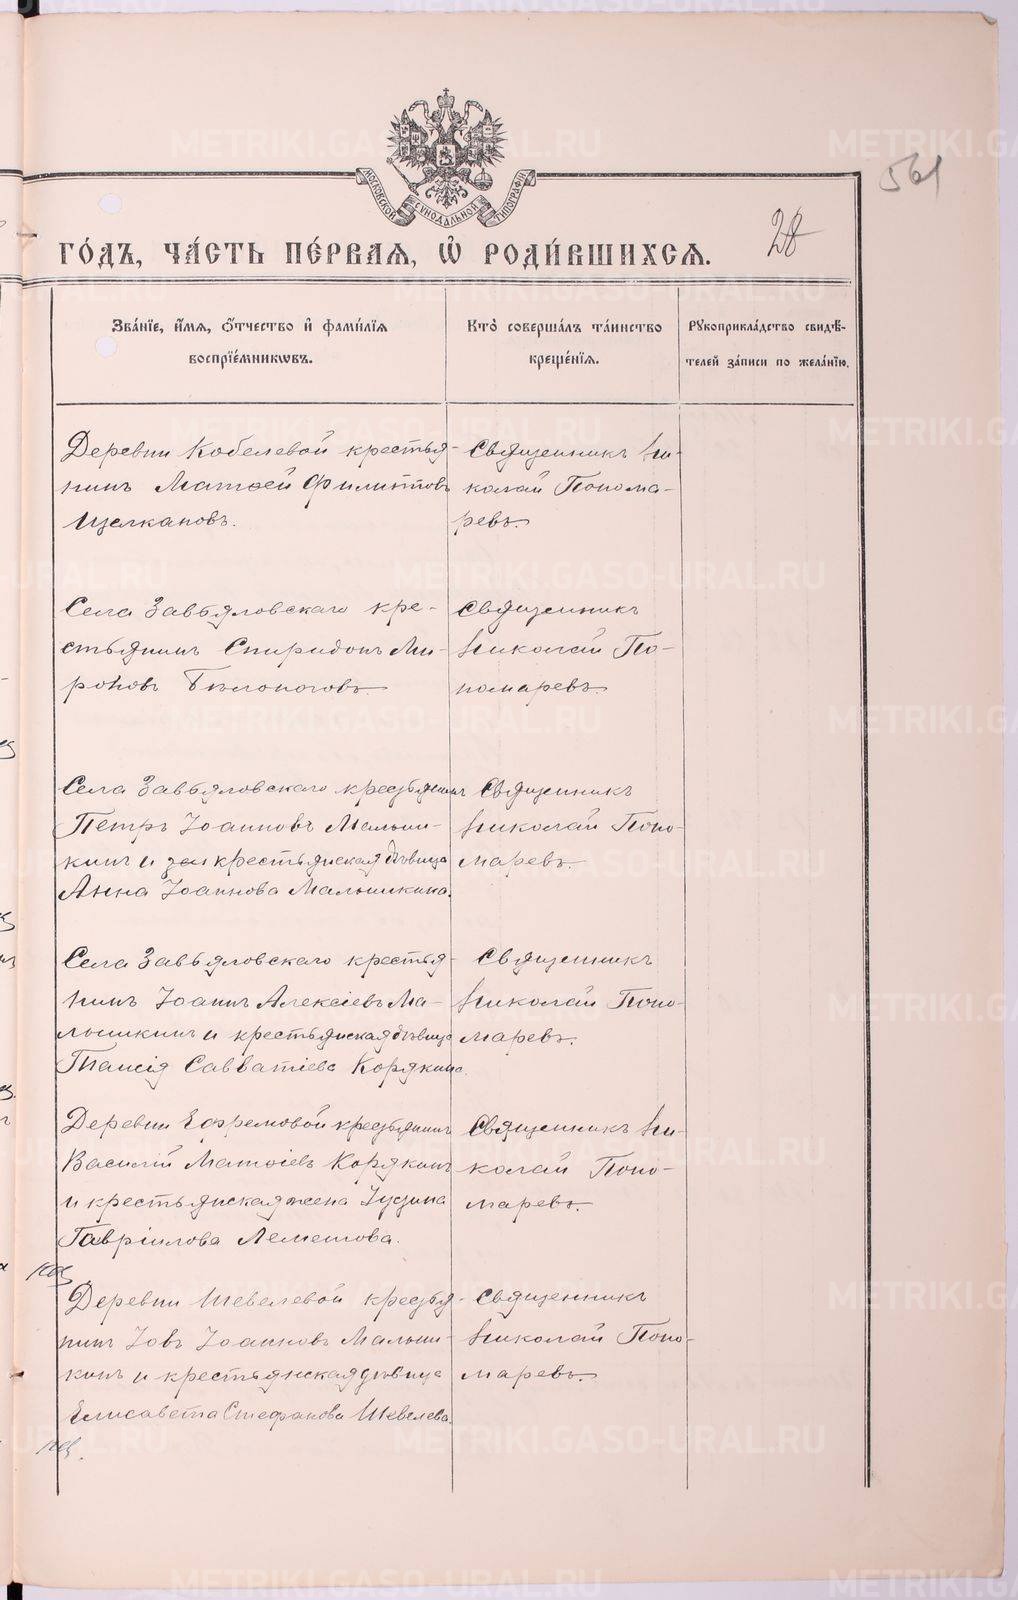 561
28
МОСКОВСКОЙ СѴНОДАЛЬНОЙ ТИПОГРАФІИ
ГО́ДЪ, ЧА́СТЬ ПЕ́РВАЯ, Ѡ҆ РОДИ́ВШИХСЯ.
Зва́нїе, и҆́мя, ѻ҆́тчество и҆ фами́лїя
воспрїе́мникѡвъ.
Кто̀ соверша́лъ та́инство
креще́нїя.
Рꙋкоприкла́дство свидѣ́-
телей за́писи по жела́нїю.
Деревни Кобелевой крестья-
нинъ Матѳей Филиповъ
Щелкановъ.
Священникъ Ни-
колай Понома-
ревъ.
Села Завьяловскаго кре-
стьянинъ Спиридонъ Ми-
роновъ Бѣлоноговъ
Священникъ
Николай По-
номаревъ.
Села Завьяловскаго крестьянинъ
Петръ Іоанновъ Малыш-
кинъ и крестьянская дѣвица
Анна Іоаннова Малышкина.
Священникъ
Николай Поно-
маревъ.
Села Завьяловскаго крестья-
нинъ Іоаннъ Алексіевъ Ма-
лышкинъ и крестьянская дѣвица
Таисія Савватіева Корякина.
Священникъ
Николай Поно-
маревъ.
Деревни Ефремовой крестьянинъ
Василій Матѳіевъ Корякинъ
и крестьянская жена
Гавріилова Леметова.
Священникъ Ни-
колай Поно-
маревъ.
Деревни Шевелевой крестья-
нинъ Іовъ Іоанновъ Малыш-
кинъ и крестьянская дѣвица
Елисавета Стефанова Шевелева.
Священникъ
Николай Поно-
маревъ.
METRIKI.GASO-URAL.RU